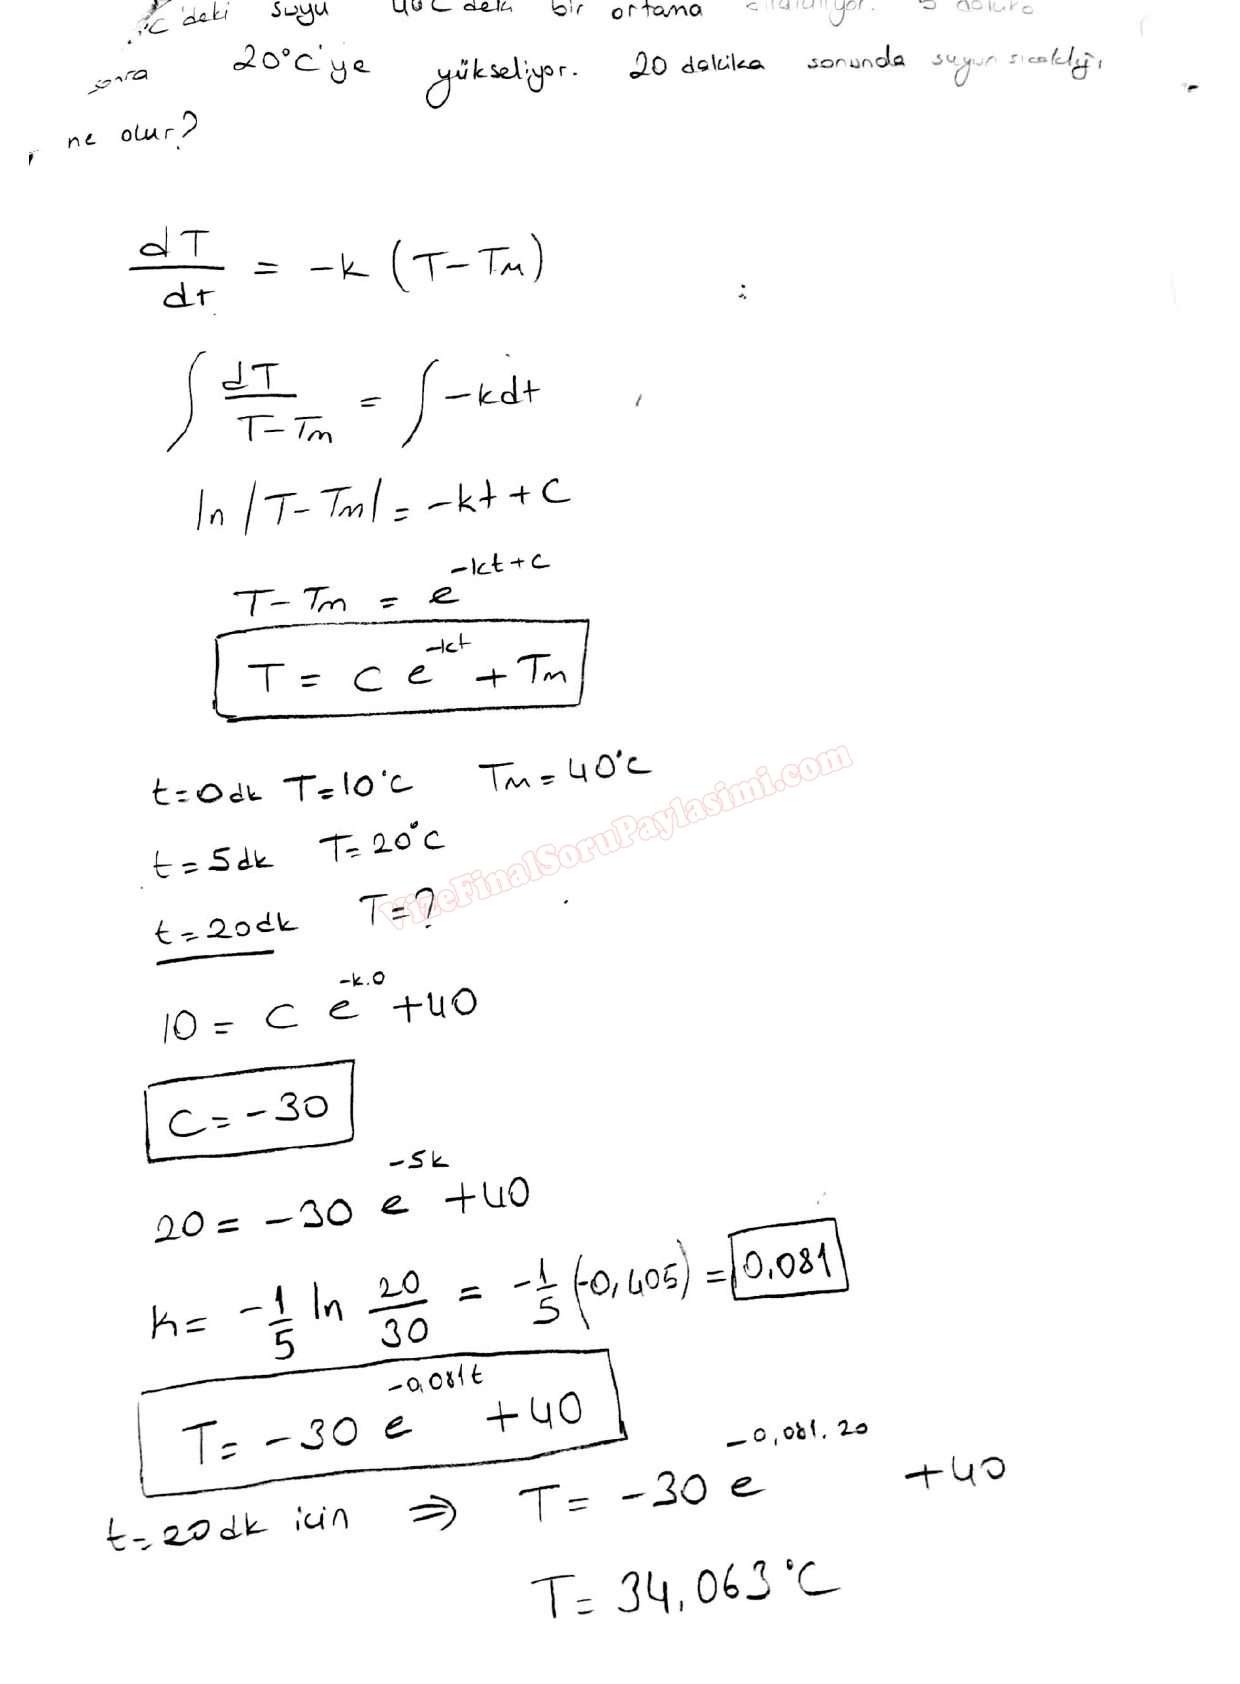 °C'deki suyu 40°C'deki bir ortama kaldırılıyor. 5 dakika
sonra 20°C'ye yükseliyor. 20 dakika sonunda suyun sıcaklığı
ne olur?
dT/dt = -k (T-Tm)
∫ dT/(T-Tm) = ∫ -kdt
ln |T-Tm| = -kt + C
T-Tm = e^(-kt+c)
T = C e^(-kt) + Tm
t=0dk T=10°C Tm=40°C
t=5dk T=20°C
t=20dk T=?
VizeFinalSoruPaylasimi.com
10 = C e^(-k.0) +40
C=-30
20 = -30 e^(-5k) +40
k= -1/5 ln 20/30 = -1/5 (-0,405) = 0,081
T= -30 e^(-0,081t) +40
t=20dk icin ⇒ T= -30 e^(-0,081.20) +40
T= 34,063°C